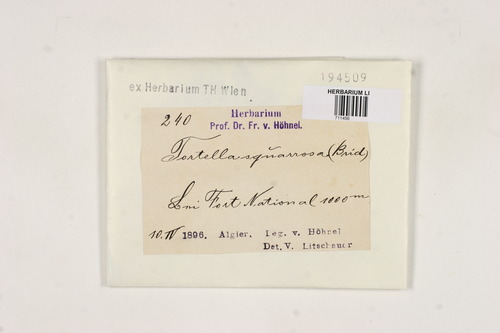 194509
ex Herbarium TH Wien
HERBARIUM LI
240
Herbarium
Prof. Dr. Fr. v. Höhnel.
Tortella squarrosa (Brid)
Fort National 1000 m
10. IV 1896. Algier. Leg. v. Höhnel
Det. V. Litschauer